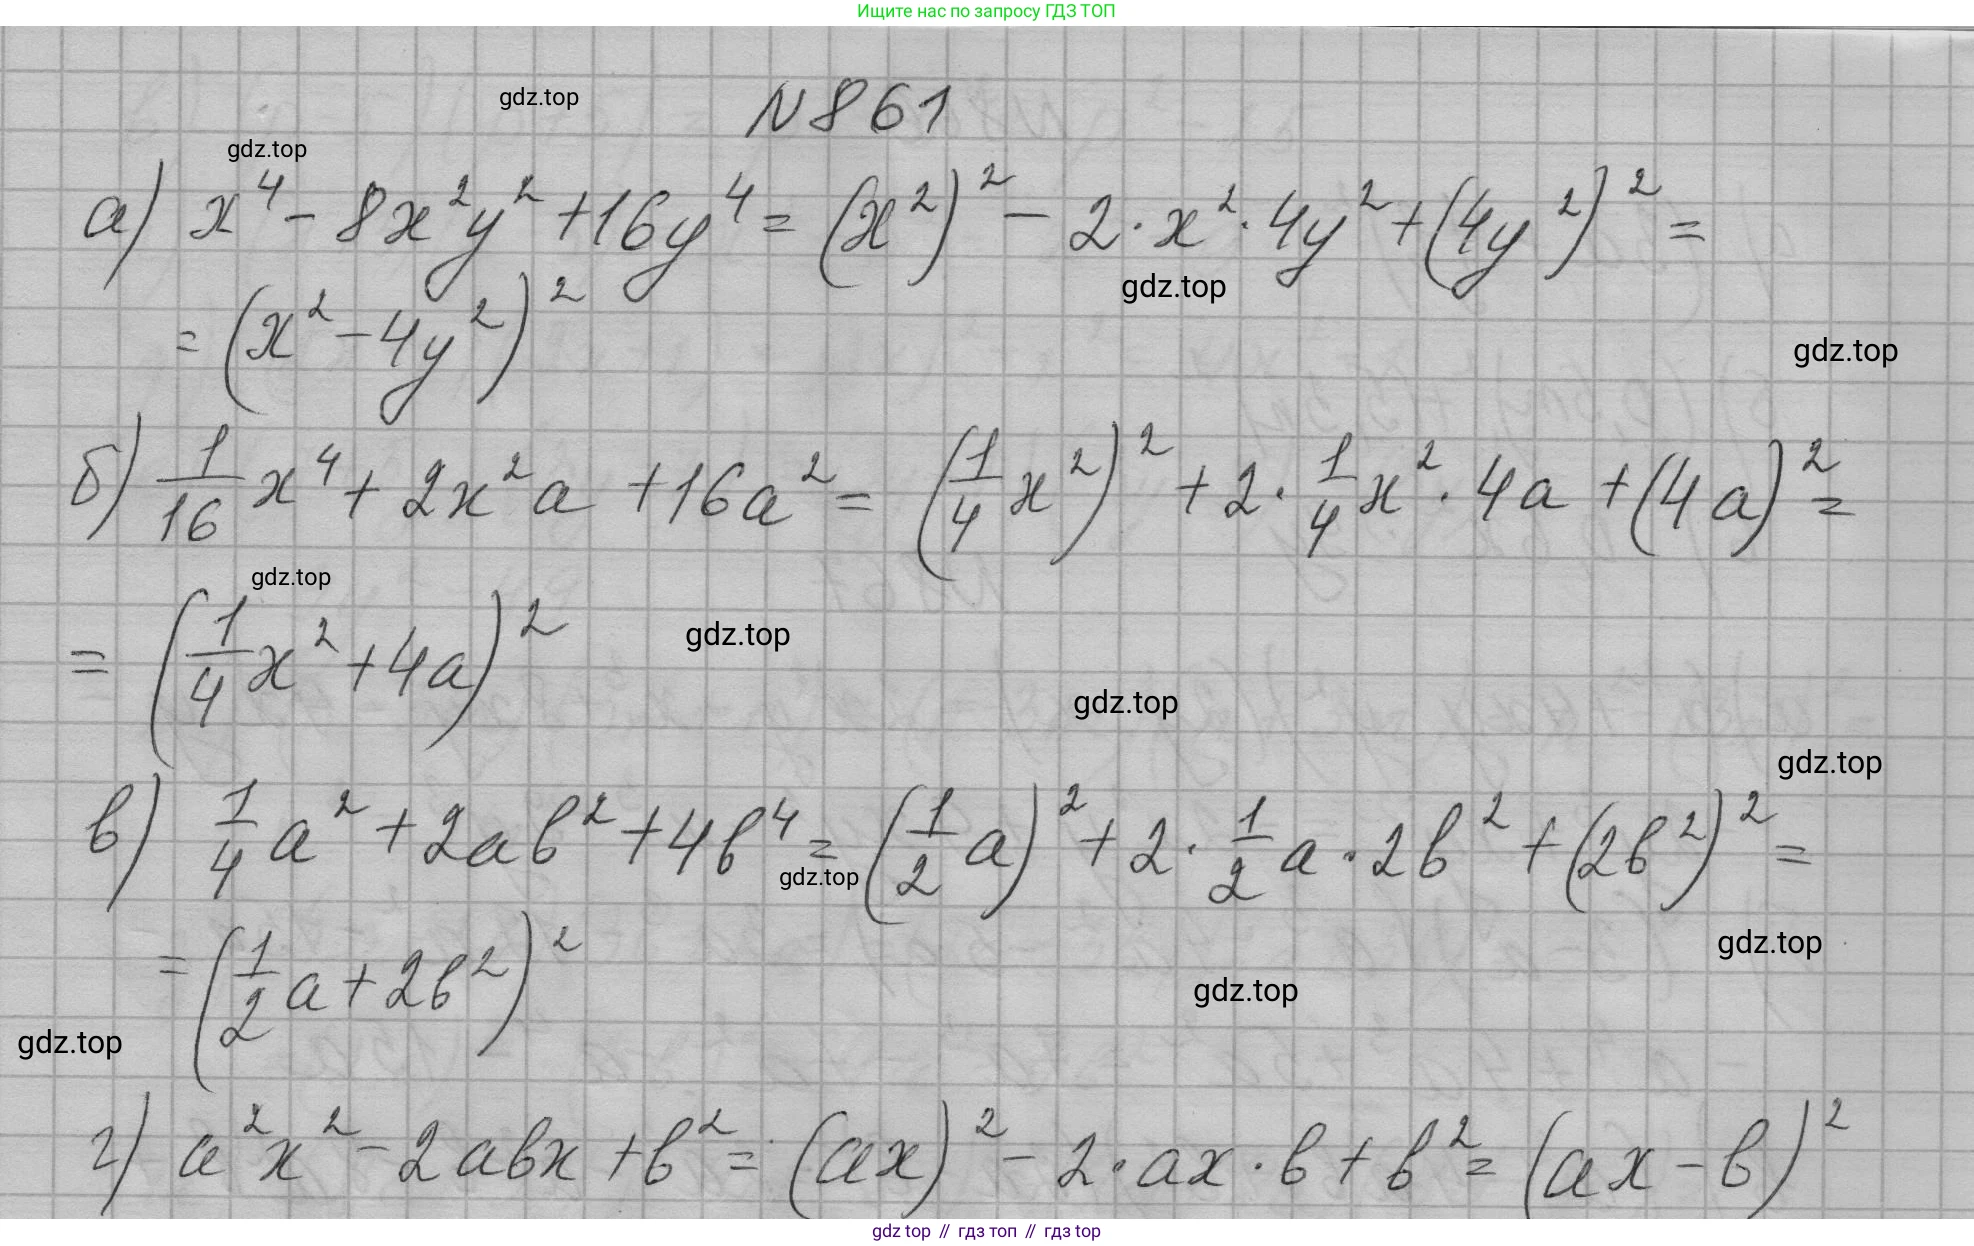 Ищите нас по запросу ГДЗ ТОП
gdz.top
N 861
gdz.top
а) x⁴ - 8x²y² + 16y⁴ = (x²)² - 2 · x² · 4y² + (4y²)² =
gdz.top
= (x² - 4y²)²
gdz.top
б) 1/16 x⁴ + 2x²a + 16a² = (1/4 x²)² + 2 · 1/4 x² · 4a + (4a)² =
gdz.top
= (1/4 x² + 4a)²
gdz.top
gdz.top
gdz.top
в) 1/4 a² + 2ab² + 4b⁴ = (1/2 a)² + 2 · 1/2 a · 2b² + (2b²)² =
gdz.top
gdz.top
= (1/2 a + 2b²)²
gdz.top
gdz.top
г) a²x² - 2abx + b² = (ax)² - 2 · ax · b + b² = (ax - b)²
gdz top // гдз топ // гдз top